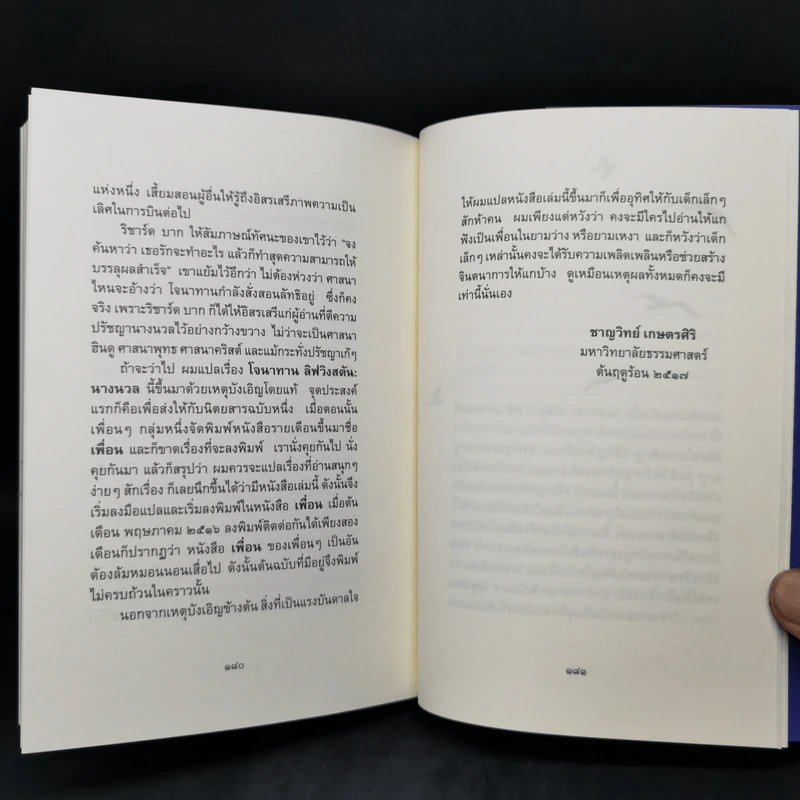 แห่งหนึ่ง เสี้ยมสอนผู้อื่นให้รู้ถึงอิสรเสรีภาพความเป็น
เลิศในการบินต่อไป
ริชาร์ด บาก ให้สัมภาษณ์ทัศนะของเขาไว้ว่า “จง
ค้นหาว่า เธอรักจะทำอะไร แล้วก็ทำสุดความสามารถให้
บรรลุผลสำเร็จ” เขาแย้มไว้อีกว่า ไม่ต้องห่วงว่า ศาสนา
ไหนจะอ้างว่า โจนาทานกำลังสั่งสอนลัทธิอยู่ ซึ่งก็คง
จริง เพราะริชาร์ด บาก ก็ได้ให้อิสรเสรีแก่ผู้อ่านที่ตีความ
ปรัชญานางนวลไว้อย่างกว้างขวาง ไม่ว่าจะเป็นศาสนา
ฮินดู ศาสนาพุทธ ศาสนาคริสต์ และแม้กระทั่งปรัชญาเก๊ๆ
ถ้าจะว่าไป ผมแปลเรื่อง โจนาทาน ลิฟวิงสตัน:
นางนวล นี้ขึ้นมาด้วยเหตุบังเอิญโดยแท้ จุดประสงค์
แรกก็คือเพื่อส่งให้กับนิตยสารฉบับหนึ่ง เมื่อตอนนั้น
เพื่อนๆ กลุ่มหนึ่งจัดพิมพ์หนังสือรายเดือนขึ้นมาชื่อ
เพื่อน และก็ขาดเรื่องที่จะลงพิมพ์ เรานั่งคุยกันไป นั่ง
คุยกันมา แล้วก็สรุปว่า ผมควรจะแปลเรื่องที่อ่านสนุกๆ
ง่ายๆ สักเรื่อง ก็เลยนึกขึ้นได้ว่ามีหนังสือเล่มนี้ ดังนั้นจึง
เริ่มลงมือแปลและเริ่มลงพิมพ์ในหนังสือ เพื่อน เมื่อต้น
เดือน พฤษภาคม ๒๕๑๖ ลงพิมพ์ติดต่อกันได้เพียงสอง
เดือนก็ปรากฏว่า หนังสือ เพื่อน ของเพื่อนๆ เป็นอัน
ต้องล้มหมอนนอนเสื่อไป ดังนั้นต้นฉบับที่มีอยู่จึงพิมพ์
ไม่ครบถ้วนในคราวนั้น
นอกจากเหตุบังเอิญข้างต้น สิ่งที่เป็นแรงบันดาลใจ
๑๘๐
ให้ผมแปลหนังสือเล่มนี้ขึ้นมาก็เพื่ออุทิศให้กับเด็กเล็กๆ
สักห้าคน ผมเพียงแต่หวังว่า คงจะมีใครไปอ่านให้แก
ฟังเป็นเพื่อนในยามว่าง หรือยามเหงา และก็หวังว่าเด็ก
เล็กๆ เหล่านั้นคงจะได้รับความเพลิดเพลินหรือช่วยสร้าง
จินตนาการให้แกบ้าง ดูเหมือนเหตุผลทั้งหมดก็คงจะมี
เท่านี้นั่นเอง
ชาญวิทย์ เกษตรศิริ
มหาวิทยาลัยธรรมศาสตร์
ต้นฤดูร้อน ๒๕๑๗
๑๘๑